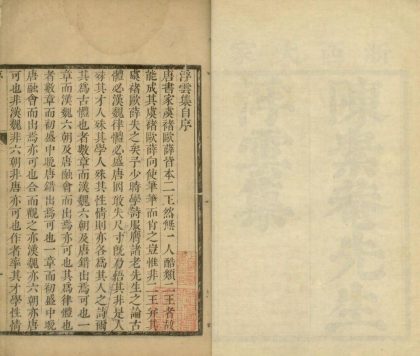 浮雲集自序
唐書家虞褚歐薛皆本二王然無一人酷類二王者故
能成其虞褚歐薛向使筆筆而肖之豈惟非二王并其
虞褚歐薛失之矣予少時學詩服膺諸老先生之論古
體必漢魏律體必盛唐罔敢失尺寸旣而悟其非是人
殊其才人殊其學人殊其性情則亦各爲其人之詩爾
其爲古體也者數章而漢魏六朝及唐錯出焉可也一
章而漢魏六朝及唐融會而出焉亦可也其爲律體也
者數章而初盛中晚唐錯出焉可也一章而初盛中晚
唐融會而出焉亦可也合而觀之亦漢魏亦六朝亦唐
可也非漢魏非六朝非唐亦可也作者率其才學性情